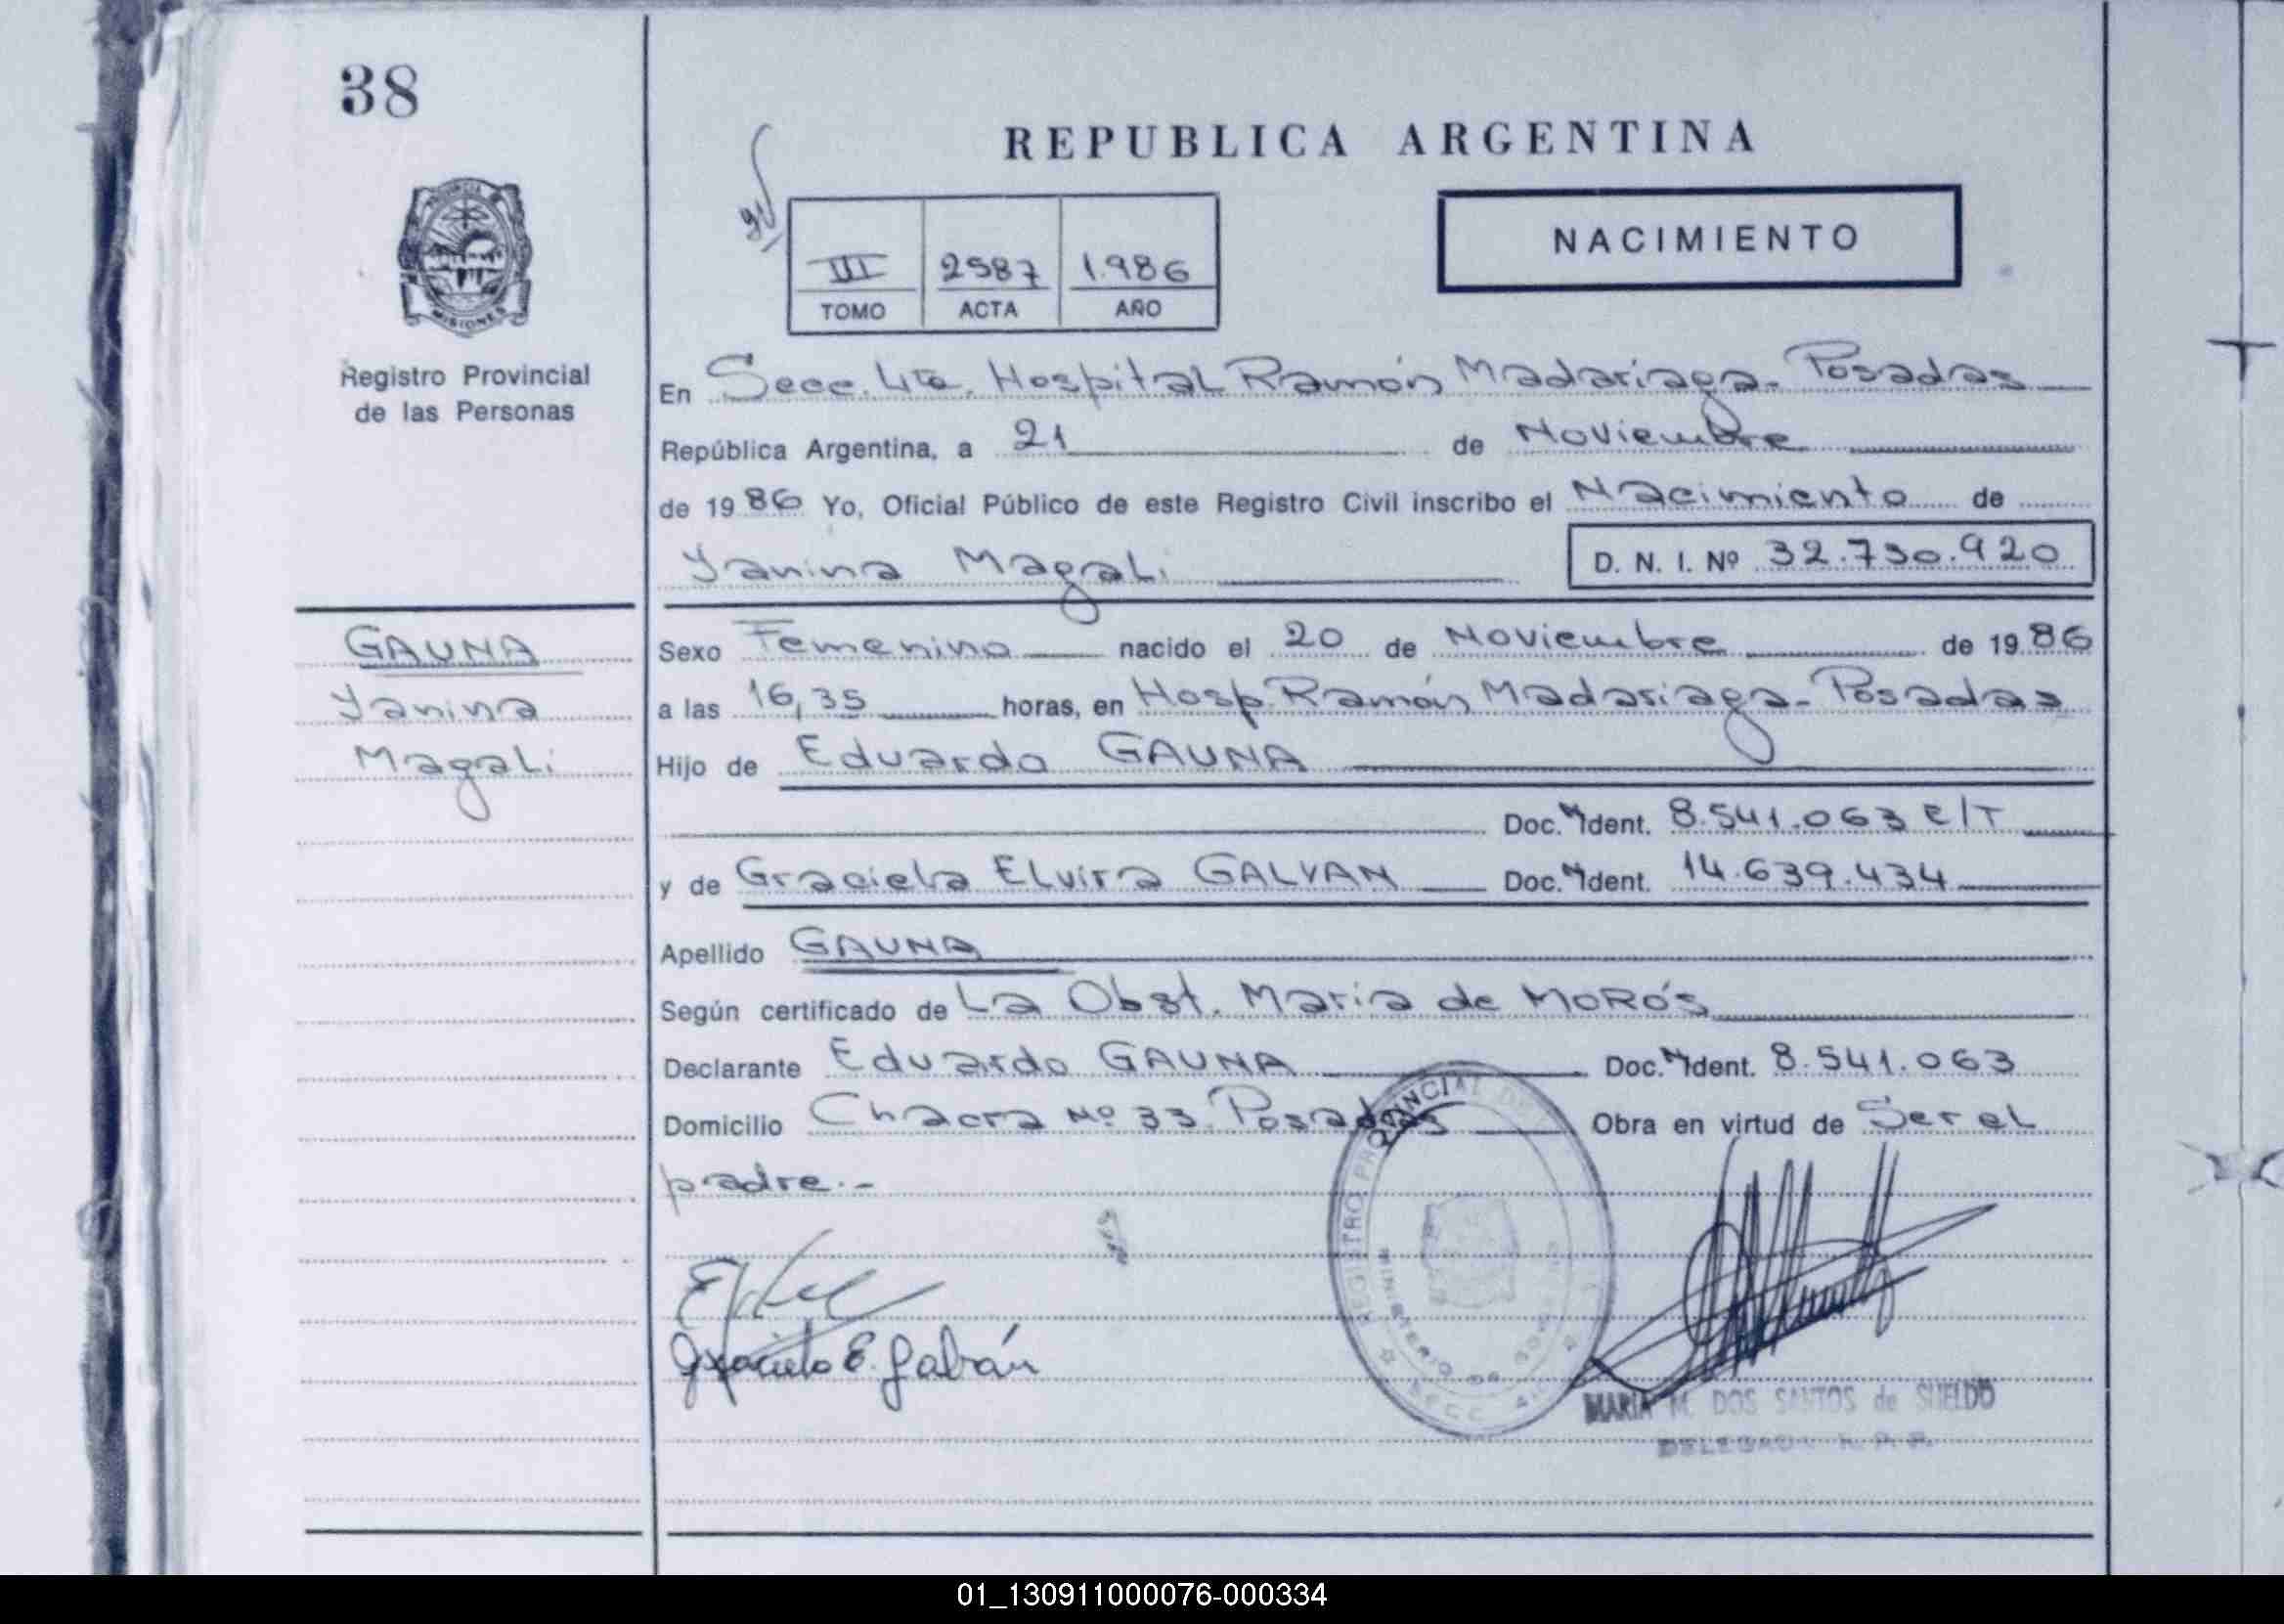 38
REPUBLICA ARGENTINA
PROVINCIA
MISIONES
Registro Provincial
de las Personas
III 2587 1.986
TOMO ACTA AÑO
NACIMIENTO
En Secc. 4ta. Hospital Ramón Madariaga- Posadas
República Argentina, a 21 de Noviembre
de 1986 Yo, Oficial Público de este Registro Civil inscribo el Nacimiento de
Yanina Magali
D. N. I. Nº 32.730.920
GAUNA
Yanina
Magali
Sexo Femenino nacido el 20 de Noviembre de 1986
a las 16,35 horas, en Hosp. Ramón Madariaga- Posadas
Hijo de Eduardo GAUNA
Doc. Ident. 8.541.063 C/T
y de Graciela Elvira GALVAN Doc. Ident. 14.639.434
Apellido GAUNA
Según certificado de La Obst. Maria de MORÓS
Declarante Eduardo GAUNA Doc. Ident. 8.541.063
Domicilio Chacra Nº 33 Posadas Obra en virtud de Ser el
padre.-
REGISTRO PROVINCIAL DE
MINISTERIO DE GOB
SECC. 4
Graciela E. Galván
MARIA M. DOS SANTOS de SUELDO
DELEGADA R. P. P.
01_130911000076-000334